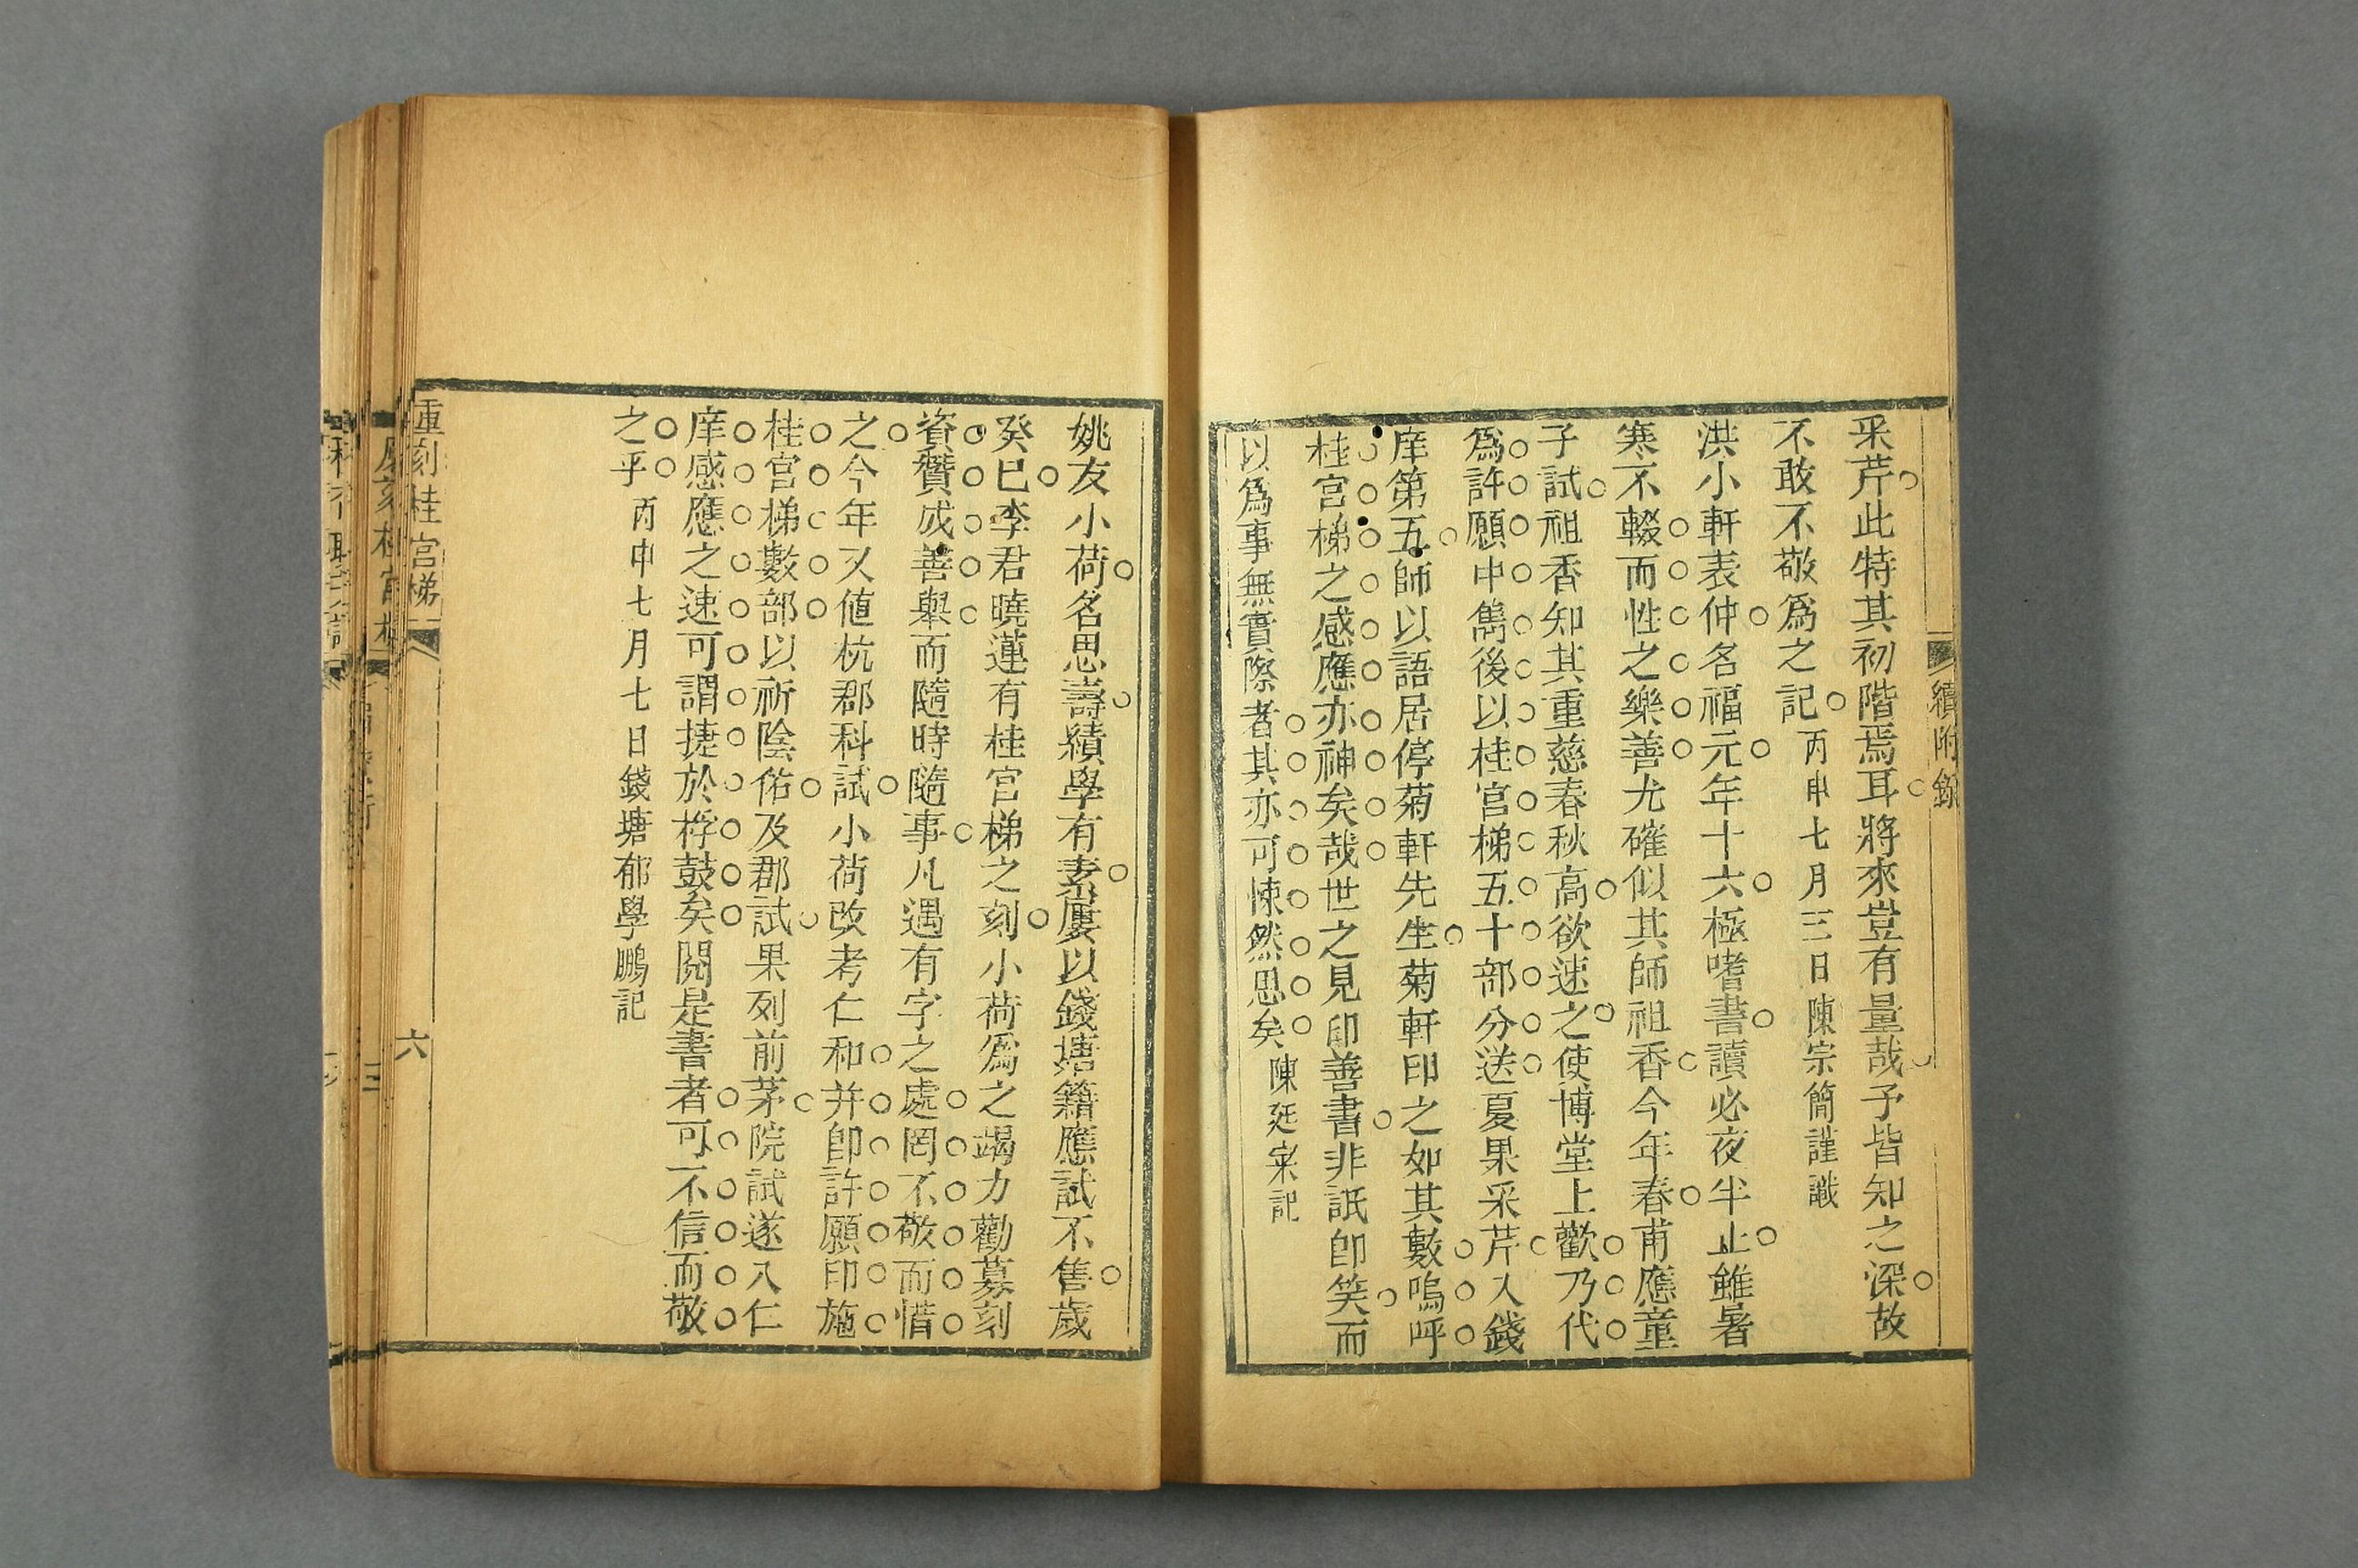 續附錄
采芹此特其初階焉耳將來豈有量哉予皆知之深故
不敢不敬爲之記丙申七月三日陳宗簡謹識
洪小軒表仲名福元年十六極嗜書讀必夜半止雖暑
寒不輟而性之樂善尤確似其師祖香今年春甫應童
子試祖香知其重慈春秋高欲速之使博堂上歡乃代
爲許願中雋後以桂宮梯五十部分送夏果采芹入錢
庠第五師以語居停菊軒先生菊軒印之如其數嗚呼
桂宮梯之感應亦神矣哉世之見印善書非詆卽笑而
以爲事無實際者其亦可悚然思矣陳廷寀記
姚友小荷名思壽績學有素屢以錢塘籍應試不售歲
癸巳李君曉蓮有桂宮梯之刻小荷爲之竭力勸募刻
資贊成善舉而隨時隨事凡遇有字之處罔不敬而惜
之今年又値杭郡科試小荷改考仁和幷卽許願印施
桂宮梯數部以祈陰佑及郡試果列前茅院試遂入仁
庠感應之速可謂捷於桴鼓矣閱是書者可不信而敬
之乎丙申七月七日錢塘郁學鵬記
重刻桂宮梯
六